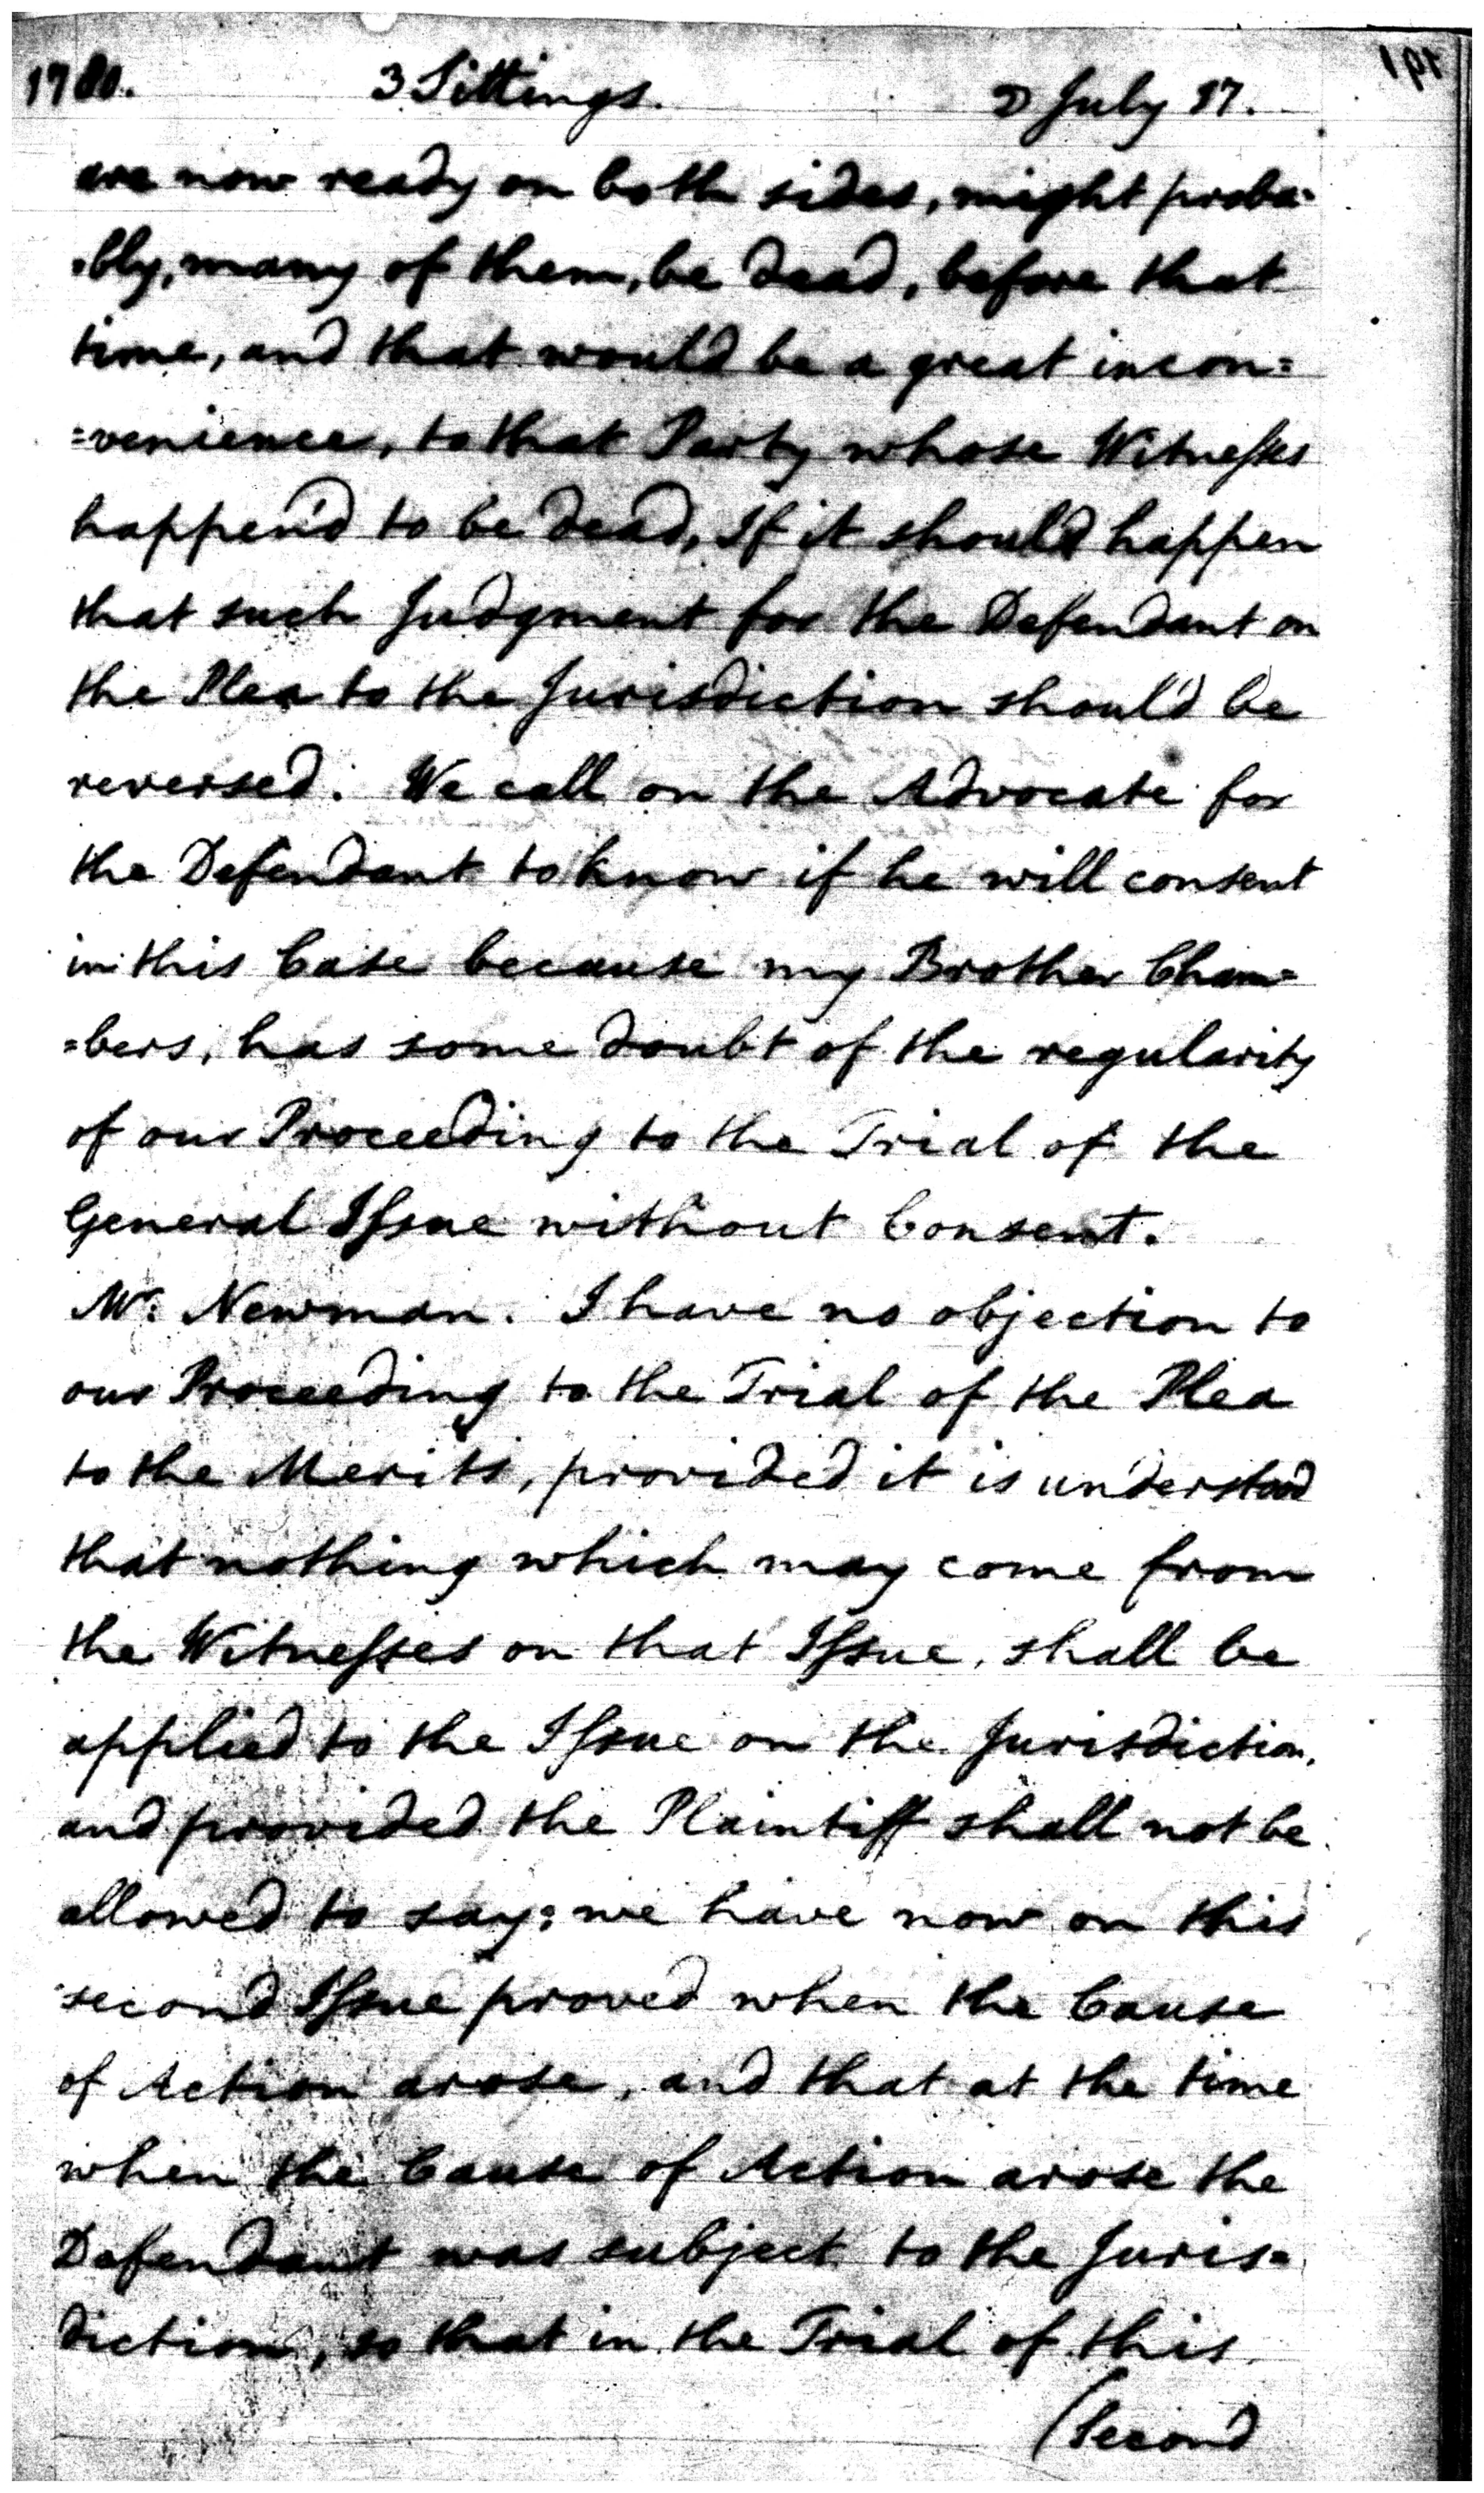 1780. 3 Sittings. ☽ July 17.
are now ready on both sides, might proba=
=bly, many of them, be dead, before that
time, and that would be a great incon=
=venience, to that Party whose Witneſses
happen'd to be dead, If it should happen
that such Judgment for the Defendant on
the Plea to the Jurisdiction should be
reversed. We call on the Advocate for
the Defendant to know if he will consent
in this Case because my Brother Cham=
=bers, has some doubt of the regularity
of our Proceeding to the Trial of the
General Iſsue without Consent.
Mr. Newman. I have no objection to
our Proceeding to the Trial of the Plea
to the Merits, provided it is understood
that nothing which may come from
the Witneſses on that Iſsue, shall be
applied to the Iſsue on the Jurisdiction,
and provided the Plaintiff shall not be
allowed to say: we have now on this
second Iſsue proved when the Cause
of Action arose, and that at the time
when the Cause of Action arose the
Defendant was subject to the Juris=
diction, so that in the Trial of this
(Second